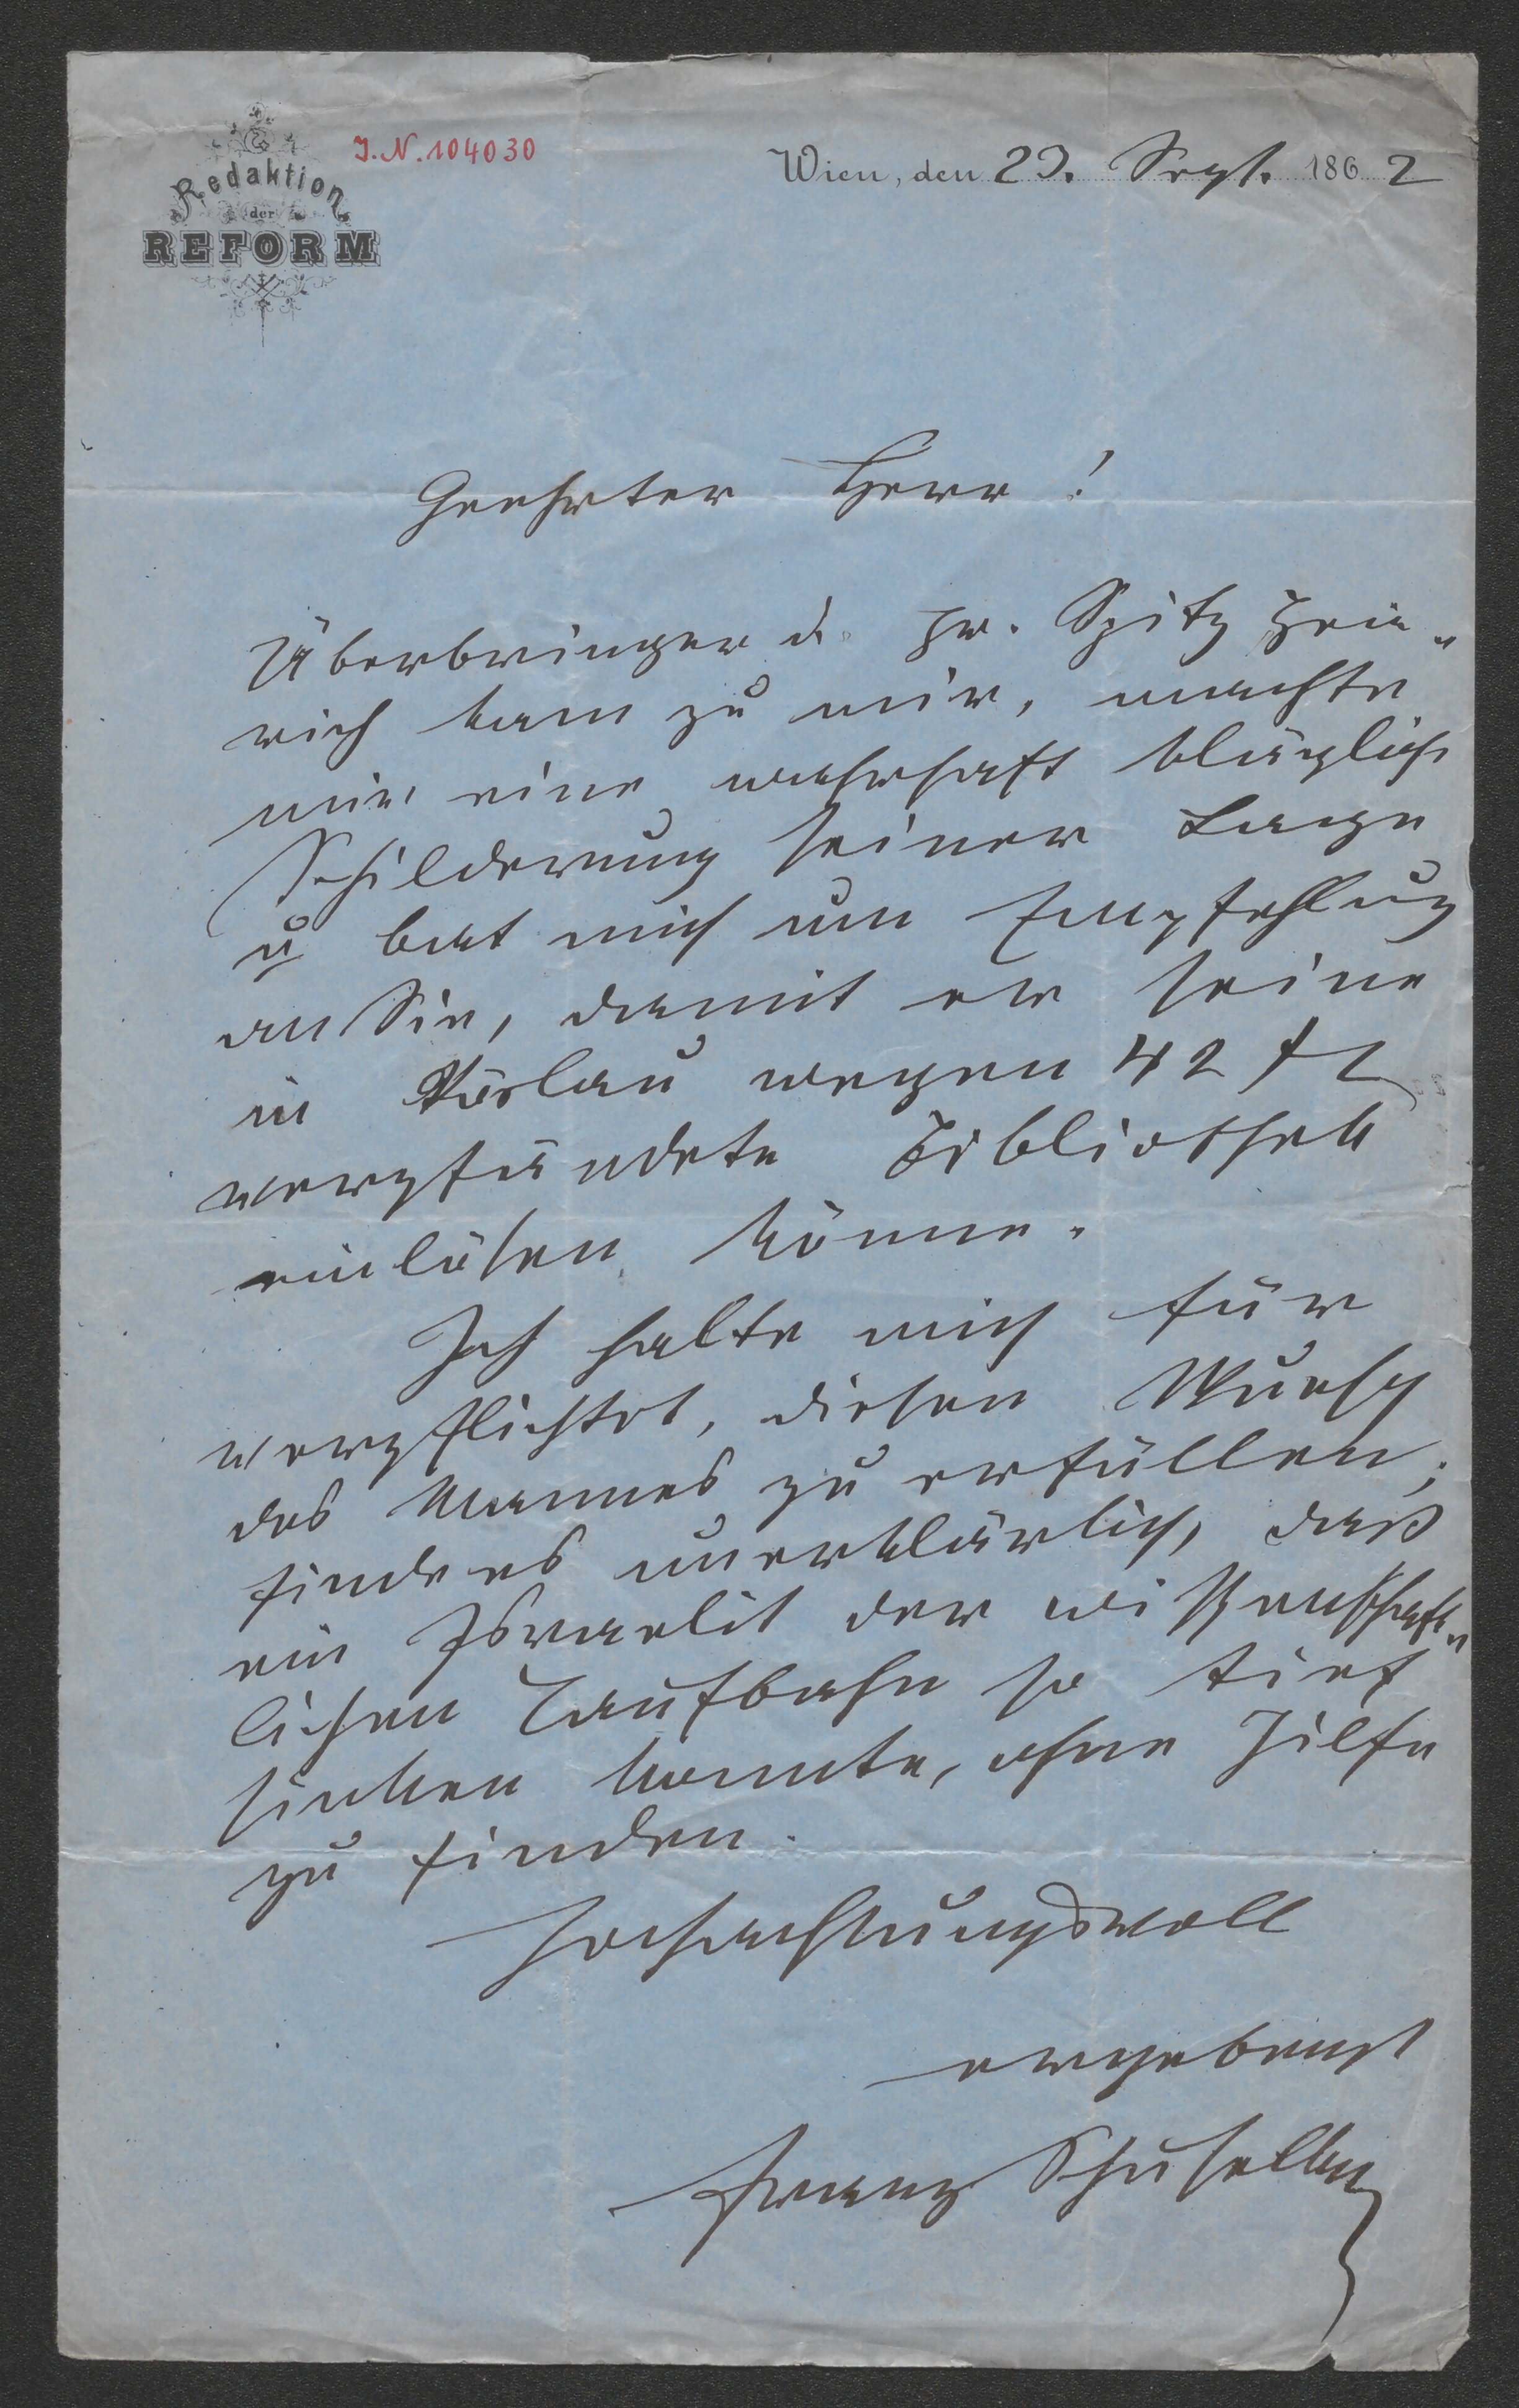 Redaktion
der
REFORM
J.N. 104030
Wien, den 29. Sept. 1862
Geehrter Herr!
Überbringer d. Hr. Spitz Hein„
rich kam zu mir, machte
mir eine wahrhaft klägliche
Schilderung seiner Lage
u bat mich um Empfehlung
an Sie, damit er seine
in Vöslau wegen 42 fl
verpfändete Bibliothek
einlösen könne.
Ich halte mich für
verpflichtet, diesen Wunsch
des Mannes zu erfüllen;
finde es unerklärlich, daß
ein Israelit der wissenschaft„
lichen Laufbahn so tief
sinken konnte, ohne Hilfe
zu finden.
Hochachtungsvoll
ergebenst
Franz Schuselka